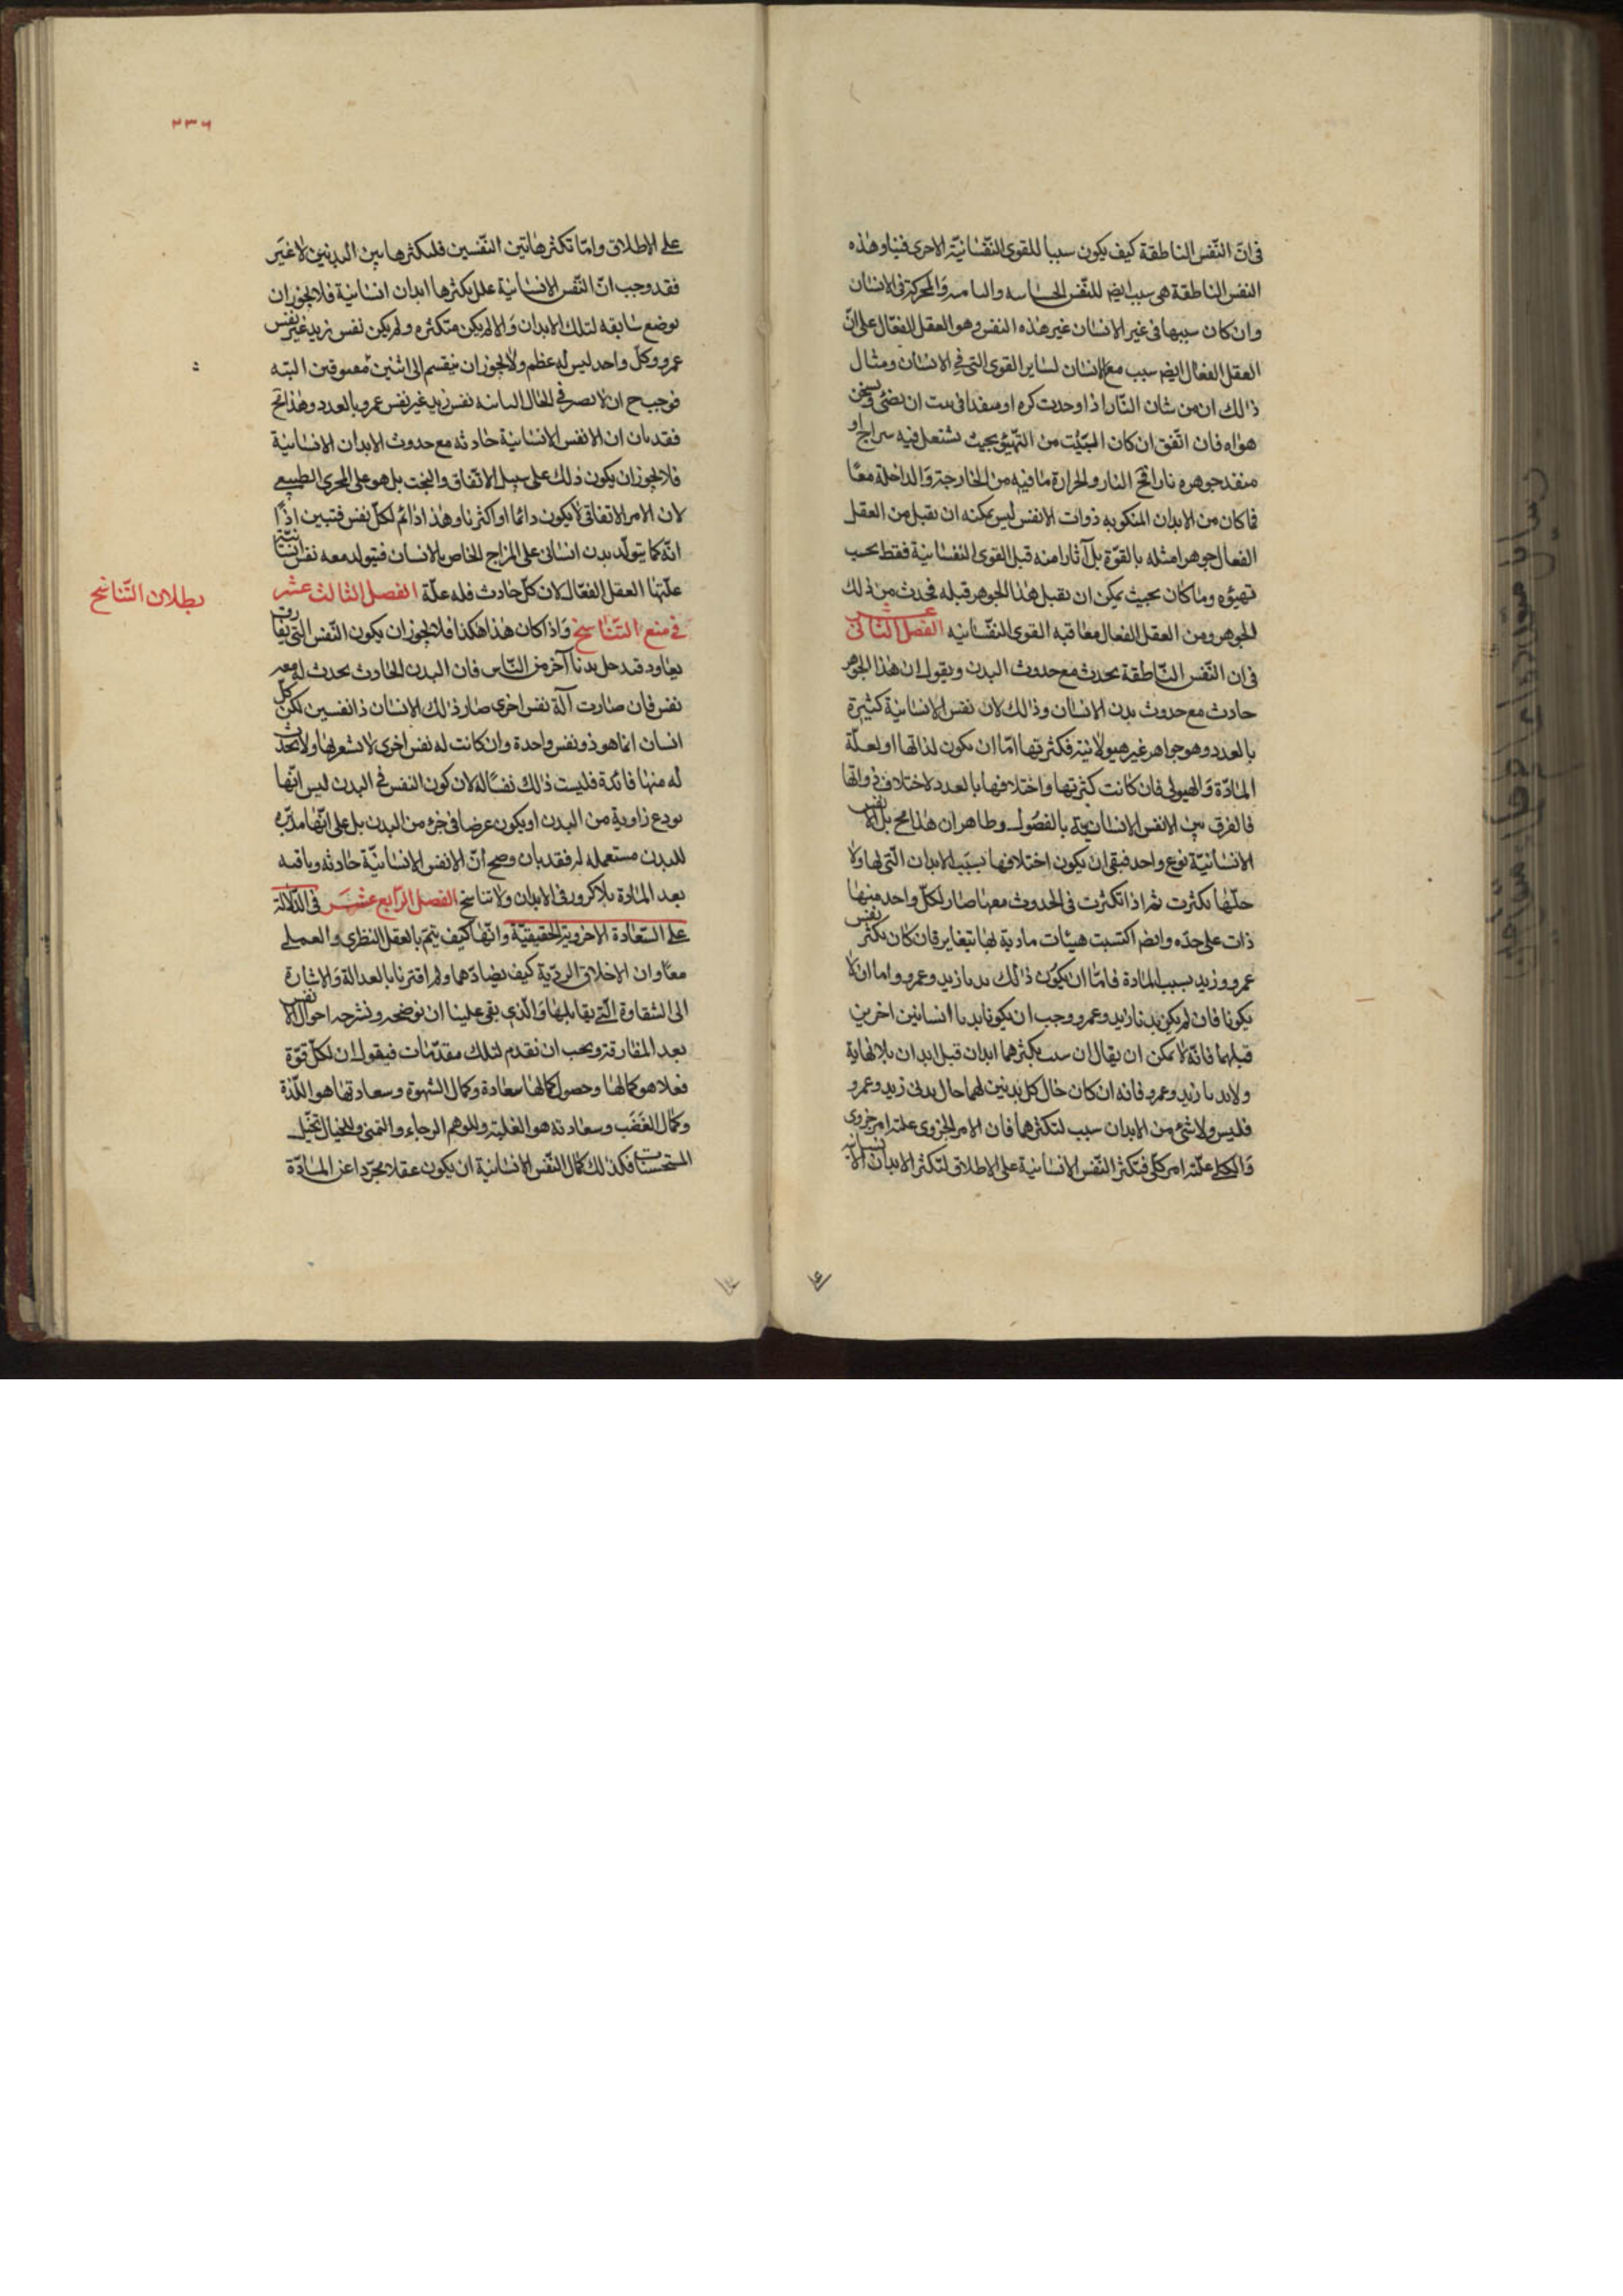 فى ان النّفس الناطقة كيف يكون سببا للقوى النّفسانيّة الاخرى فينا وهذه
النفس الناطقة هى سبب ايضا للنّفس الحساسه والنامية والمحركة فى الانسان
وان كان سببها فى غير الانسان غير هذه النفس وهو العقل الفعّال على انّ
العقل الفعال ايضا سبب مع الانسان لساير القوى التى فى الانسان ومثال
ذلك ان من شان النّار اذا وجدت كوه او منفذا فى بيت ان يضئ ويسخن
هواه فان اتّفق ان كان البيت من التهيّؤ بحيث تشتعل فيه سراج او
منفد جوهره نارا فح النار والحرارة ما فيه من الخارجة والداخلة معًا
فما كان من الابدان المنكوبه ذوات الانفس ليس يمكنه ان يقبل من العقل
الفعال جوهرا مثله بالقوّة بل آثارا منه قبل القوى النفسانية فقط بحسب
تهيئوه وما كان بحيث يمكن ان يقبل هذا الجوهر قبله فحدث من ذلك
الجوهر ومن العقل الفعال معا قبه القوى النفّسانيه الفصل الثانى عشر
فى ان النّفس النّاطقة يحدث مع حدوث البدن ونقول ان هذا الجوهر
حادث مع حدوث بدن الانسان وذلك لان نفس الانسانية كثيرة
بالعدد وهو جواهر غير هيولانية فكثرتها امّا ان يكون لذاتها او لعلّة
المادّة والهيولى فان كانت كثرتها واختلافها بالعدد لاختلاف ذواتها
فالفرق بين الانفس الانسانية بالفصول وظاهر ان هذا مح بل الانفس
الانسانيّة نوع واحد فبقى ان يكون اختلافها بسبب الابدان الّتى لها ولا
حلّها تكثرت ثم اذا تكثرت فى الحدوث معها صار لكلّ واحد منها
ذات على حدّه وايضا اكتسبت هيئات مادية لها يتغاير فان كان تكثر نفس
عمرو وزيد بسبب المادة فامّا ان يكون ذلك بدنا زيد وعمرو واما ان لا
يكونا فان لم يكن بدنا زيد وعمرو وجب ان يكونا بدنا انسانين اخرين
قبلهما فانّه لا يمكن ان يقال ان سبب تكثرهما ابدان قبل ابدان بلا نهاية
ولا بدنا زيد وعمرو فانه ان كان حال كل بدنين لهما حال بدنى زيد وعمرو
فليس ولا شئ من الابدان سبب لتكثرهما فان الامر الجزوى علته امر جزوى
والكلى علّته امر كلّى فتكثر النّفس الانسانية على الاطلاق لتكثر الابدان الانسانية
٢٣٦
على الاطلاق وامّا تكثر هاتين النّفسين فلتكثر هاتين البدنين لا غير
فقد وجب انّ النّفس الانسانية علل تكثرها ابدان انسانية فلا يجوز ان
توضع سابقه لتلك الابدان والا لم يكن متكثره ولم يكن نفس زيد غير نفس
عمرو وكلّ واحد ليس له عظم ولا يجوز ان ينقسم الى اثنين البته
فوجب ح ان لا تصير فى الحال الثانية نفس زيد غير نفس عمرو بالعدد وهذا مح
فقد بان ان الانفس الانسانية حادثه مع حدوث الابدان الانسانية
فلا يجوز ان يكون ذلك على سبيل الاتّفاق والبخت بل هو على المجرى الطبيعى
لان الامر الاتفاقى لا يكون دائما او اكثريا وهذا دائم لكلّ نفس فتبين اذًا
انّه كما يتولّد بدن انسانى على المزاج الخاص بالانسان فيتولد معه نفس انسانية
علّتها العقل الفعّال لان كلّ حادث فله علّة الفصل الثالث عشر
فى منع التّناسخ واذا كان هذا هكذا فلا يجوز ان يكون النّفس التى تفارق
تعاود فتدخل بدنا آخر من النّاس فان البدن الحادث يحدث له معه
نفس فان صارت آلة نفس اخرى صار ذلك الانسان ذا نفسين لكن كلّ
انسان انما هو ذو نفس واحدة وان كانت له نفس اخرى لا نشعر بها ولا تحدث
له منها فائدة فليست ذلك نفسًا له لان كون النفس فى البدن ليس انّها
تودع زاوية من البدن او يكون عرضا فى جزء من البدن بل على انّها مدبّره
للبدن مستعمله له فقد بان وصح انّ الانفس الانسانيّة حادثه وباقيه
بعد المادة بلا كرور فى الابدان ولا تناسخ الفصل الرّابع عشر فى الدّلالة
على السّعادة الاخروية الحقيقيّة وانّها كيف يتمّ بالعقل النظرى والعملى
معًا وان الاخلاق الرديّة كيف يضادّهما ولم اقترنا بالعدالة والاشارة
الى الشقاوة الّتى يقابلها والّذى بقى علينا ان نوضحه ونشرحه احوال الانفس
بعد المفارقة ويجب ان نقدم لتلك مقدّمات فيقول ان لكلّ قوّة
فعلا هو كمالها وحصول كمالها سعادة وكمال الشهوة وسعادتها هو اللّذة
وكمال الغضب وسعادته هو الغلبة وللوهم الرجاء والتمنى وللخيال تخيّل
المستحسنات فكذلك كمال النّفس الانسانية ان يكون عقلا مجرّدا عن المادّة
بطلان التّناسخ